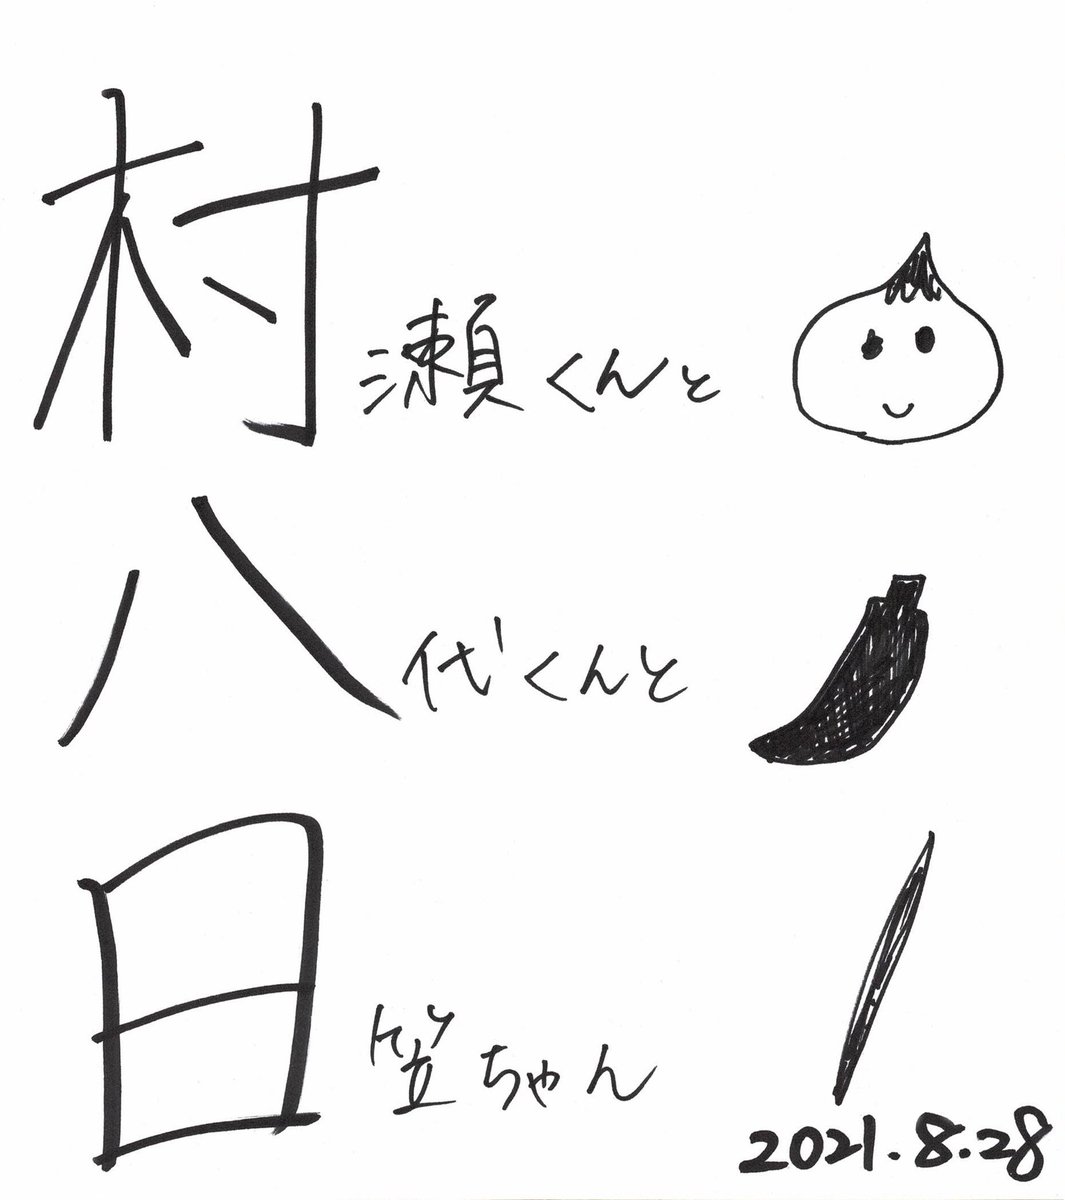 村瀬くんと
八代くんと
日笠ちゃん
2021.8.28